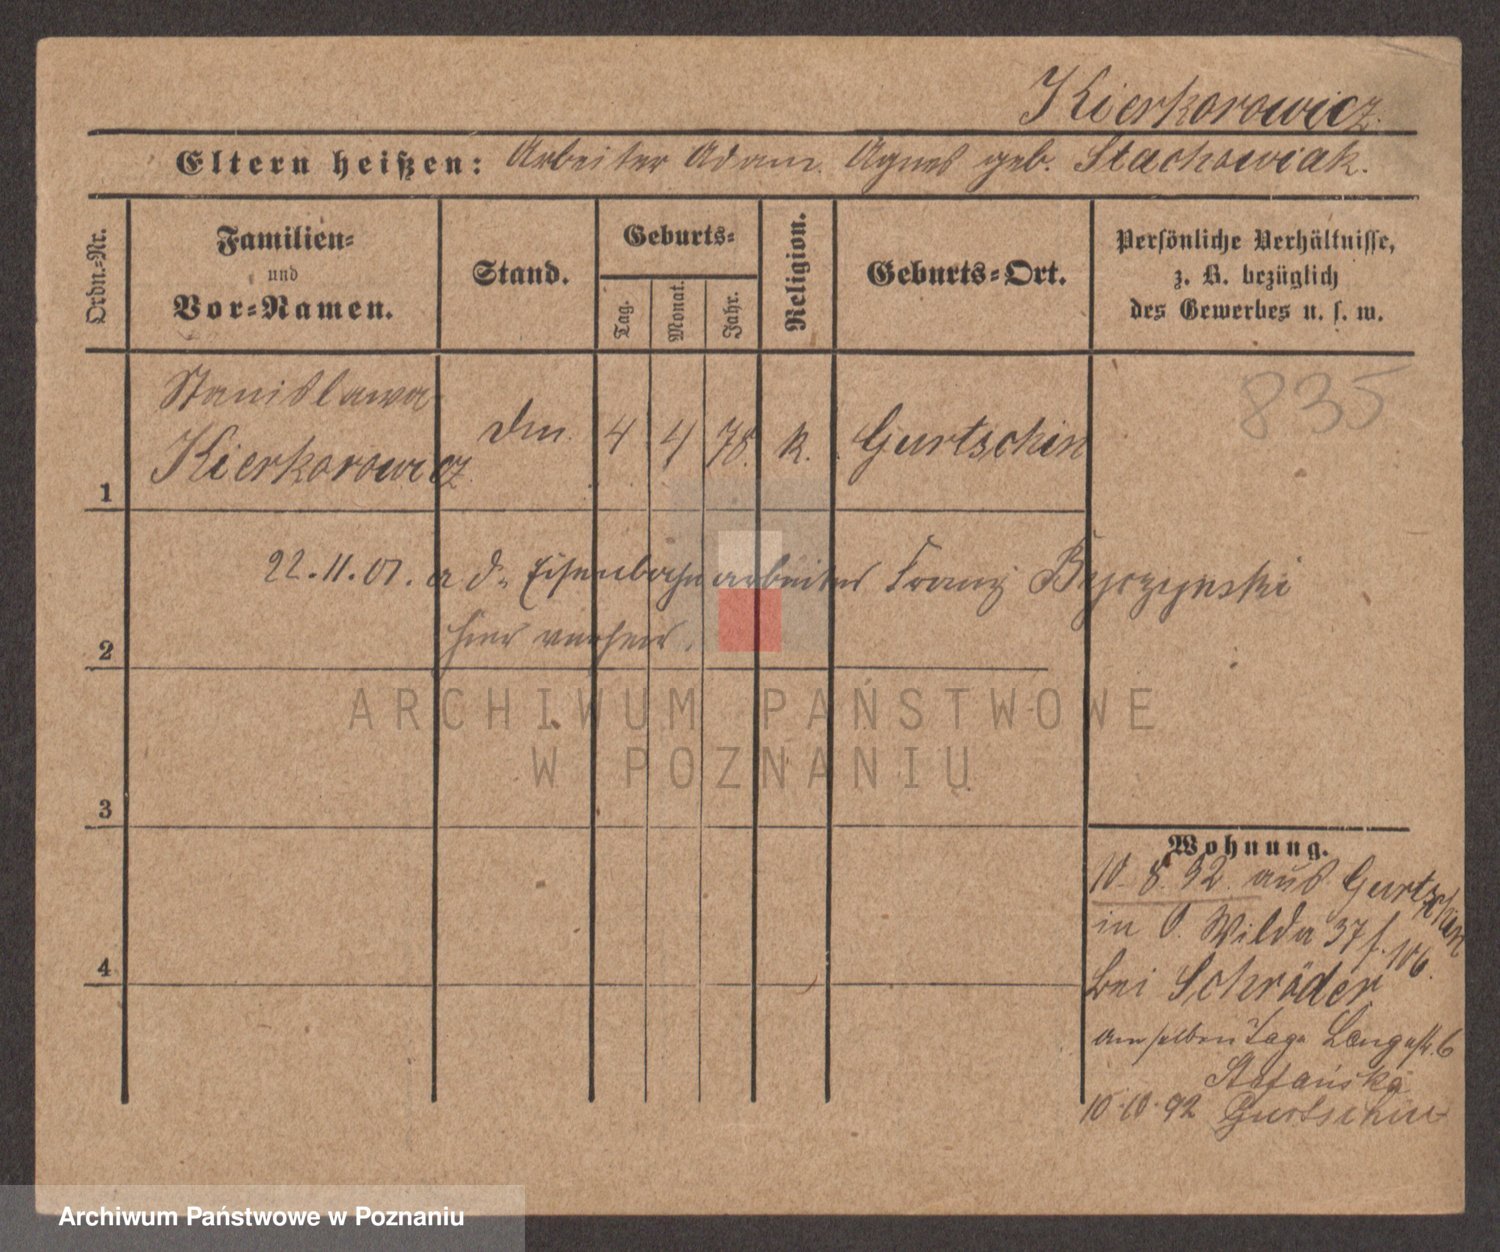 Kierkorowicz.
Eltern heißen: Arbeiter Adam. Agnes geb. Stachowiak.
Ordn.-Nr.
Familien-
und
Vor-Namen.
Stand.
Geburts-
Tag.
Monat.
Jahr.
Religion.
Geburts-Ort.
Persönliche Verhältnisse,
z. B. bezüglich
des Gewerbes u. s. w.
835
Stanislawa
Kierkorowicz
1
Dm.
4
4
78.
k.
Gurtschin
22.11.01. a d. Eisenbahnarbeiter Franz
hier verheir.
2
ARCHIWUM PAŃSTWOWE
W POZNANIU
3
4
Wohnung.
10. 8. 92. aus Gurtschin
in O. Wilda 37 f. 106.
bei Schröder
am selben Tage Langestr. 6
Stefańska
10.10.92 Gurtschin
Archiwum Państwowe w Poznaniu